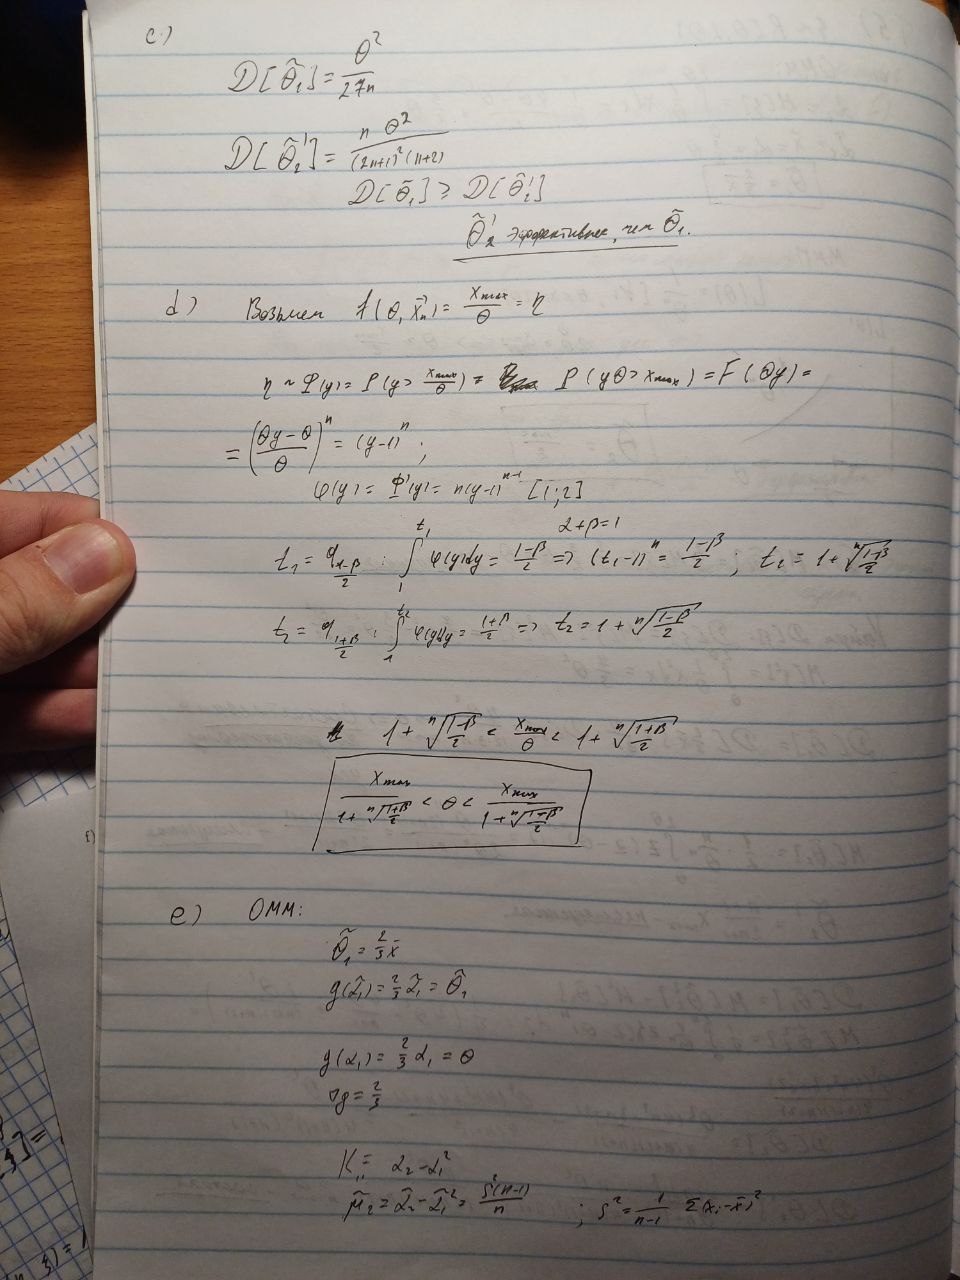 c.)
D[θ̃₁] = θ²/27n
D[θ̃₂'] = n θ²/(2n+1)²(n+2)
D[θ̃₁] ≥ D[θ̃₂']
θ̃₂' эффективнее, чем θ̃₁.
d) Возьмем f(θ, x⃗ₙ) = xmax/θ = η
η ~ Φ(y) = P(y > xmax/θ) = P(yθ > xmax) = F(θy) =
= ((θy-θ)/θ)ⁿ = (y-1)ⁿ ;
φ(y) = Φ'(y) = n(y-1)ⁿ⁻¹ [1; 2]
2+β=1
t₁ = q_(1-β)/2 : ∫₁^t₁ φ(y)dy = (1-β)/2 => (t₁-1)ⁿ = (1-β)/2 ; t₁ = 1 + ⁿ√((1-β)/2)
t₂ = q_(1+β)/2 : ∫₁^t₂ φ(y)dy = (1+β)/2 => t₂ = 1 + ⁿ√((1-β)/2)
1 + ⁿ√((1-β)/2) < xmax/θ < 1 + ⁿ√((1+β)/2)
xmax/(1+ⁿ√((1+β)/2)) < θ < xmax/(1+ⁿ√((1-β)/2))
e) ОММ:
θ̃₁ = 2/3 x̄
g(α̃₁) = 2/3 α̃₁ = θ̃₁
g(α₁) = 2/3 α₁ = θ
∇g = 2/3
K₁₁ = α₂ - α₁²
μ̃₂ = α̃₂ - α̃₁² = s²(n-1)/n ; s² = 1/(n-1) Σ(xᵢ-x̄)²
f)